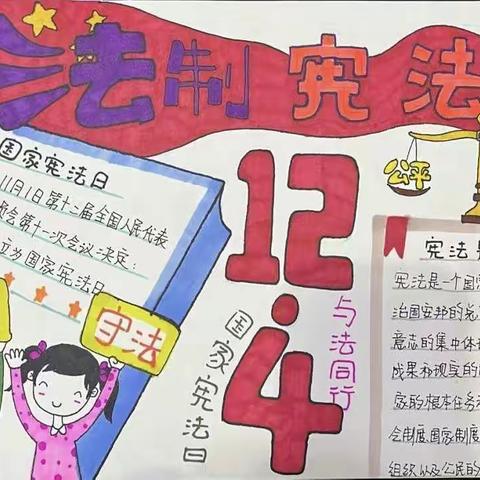 法制 宪法
国家宪法日
11月1日第十二届全国人民代表
会第十一次会议决定:
立为国家宪法日
守法
12.4
国家宪法日
与法同行
公平
宪法是
宪法是一个国
治国安邦的总
意志的集中体
成果和现实的
家的根本任务
会制度、国家制度
组织以及公民的